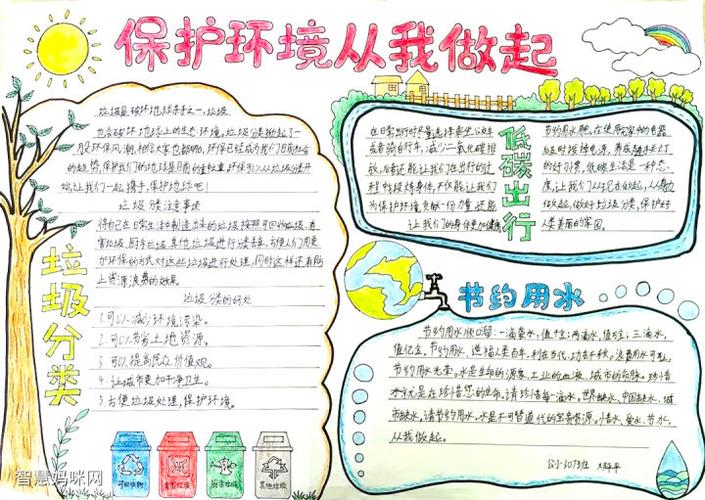 保护环境从我做起
垃圾分类
垃圾是破坏地球杀手之一,垃圾
也会破坏地球上的生态环境,垃圾分类掀起了一
股环保风潮,相信大家也都明白,环保已经成为我们日前社会
的趋势,保护我们的地球是目前的重要工作,环保可以从垃圾分类开
始,让我们一起携手,保护地球吧!
垃圾分类注意事项
将自己在日常生活中制造出来的垃圾按照可回收垃圾、有
害垃圾、厨余垃圾、其他垃圾进行分类,方便人们用更
加环保的方式对这些垃圾进行处理,同时这样还有防
止资源浪费的效果。
垃圾分类的好处
1.可以减少环境污染。
2.可以节省土地资源。
3.可以提高民众价值观。
4.让城市更加干净卫生。
5.方便垃圾处理,保护环境。
可回收物
有害垃圾
厨余垃圾
其他垃圾
低碳出行
在日常出行时尽量选择乘坐公交
或者骑自行车,减少二氧化碳排
放,后者还能让我们在出行的过
程中锻炼身体,不仅能让我们
为保护环境贡献一份力量,还能
让我们的身体更加健康
节约用水肥,在使用完家中的电器
后及时拔掉电源,养成随手关灯
的好习惯,低碳生活是一种态
度,让我们从现在做起,从身边
做起,做好垃圾分类,保护好
人类美丽的家园。
节约用水
节约用水顺口溜:一滴水,值千金;两滴水,值万金;三滴水,
值亿金,节约用水,造福人类百年,利在当代,功在千秋。浪费用水可耻,
节约用水光荣。水是生命的源泉、工业的血液、城市的命脉。珍惜
水就是在珍惜您的生命。请珍惜每一滴水,世界缺水、中国缺水、城
市缺水,请节约用水。水是不可替代的宝贵资源。惜水、爱水、节水,
从我做起。
智慧妈咪网